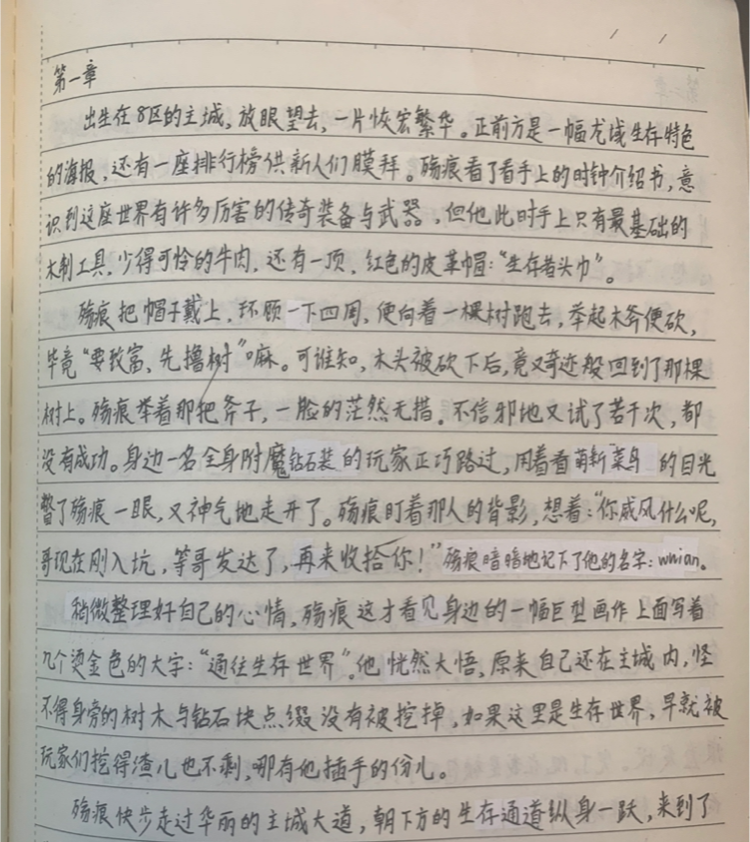 第一章
出生在8区的主城，放眼望去，一片恢宏繁华。正前方是一幅龙域生存特色
的海报，还有一座排行榜供新人们膜拜。殇痕看了看手上的时钟介绍书，意
识到这座世界有许多厉害的传奇装备与武器，但他此时手上只有最基础的
木制工具，少得可怜的牛肉，还有一顶，红色的皮革帽：“生存者头巾”。
殇痕把帽子戴上，环顾一下四周，便向着一棵树跑去，举起木斧便砍，
毕竟“要致富，先撸树”嘛。可谁知，木头被砍下后，竟又奇迹般回到了那棵
树上。殇痕举着那把斧子，一脸的茫然无措。不信邪地又试了若干次，都
没有成功。身边一名全身附魔钻石装的玩家正巧路过，用着看萌新菜鸟的目光
瞥了殇痕一眼，又神气地走开了。殇痕盯着那人的背影，想着：“你威风什么呢，
哥现在刚入坑，等哥发达了，再来收拾你！”殇痕暗暗地记下了他的名字：whian。
稍微整理好自己的心情，殇痕这才看见身边的一幅巨型画作上面写着
几个烫金色的大字：“通往生存世界”。他恍然大悟，原来自己还在主城内，怪
不得身旁的树木与钻石块点缀没有被挖掉，如果这里是生存世界，早就被
玩家们挖得渣儿也不剩，哪有他插手的份儿。
殇痕快步走过华丽的主城大道，朝下方的生存通道纵身一跃，来到了